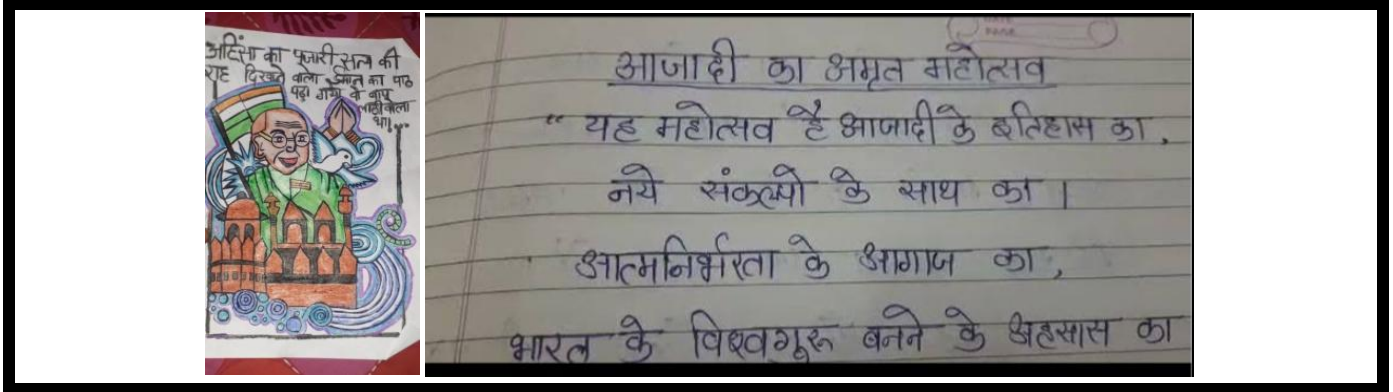 अहिंसा का पूजारी सत्य की
राह दिखाने वाला ईमान का पाठ
पढ़ा गया के बापू
लाठीवाला
था!
DATE
PAGE
आजादी का अमृत महोत्सव
“ यह महोत्सव है आजादी के इतिहास का ,
नये संकल्पो के साथ का ।
आत्मनिर्भरता के आगाज का ,
भारत के विश्वगुरू बनने के अहसास का